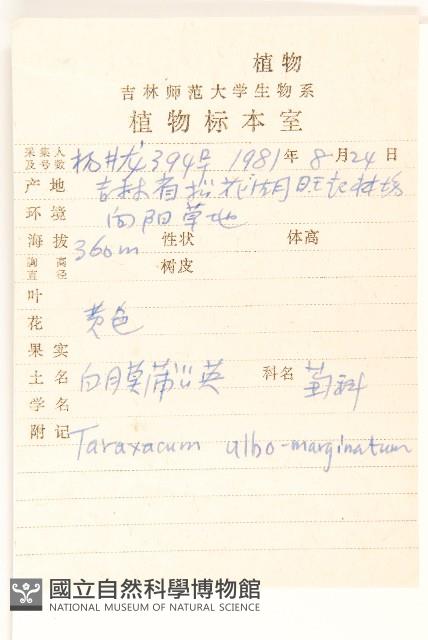 植物
吉林师范大学生物系
植物标本室
采集人及号数 杨井龙 394号 1981年 8月24日
产地 吉林省松花湖旺起林场
环境 向阳草地
海拔 360m 性状 体高
胸高直径 树皮
叶
花 黄色
果实
土名 白膜蒲公英 科名 菊科
学名
附记 Taraxacum albo-marginatum
國立自然科學博物館
NATIONAL MUSEUM OF NATURAL SCIENCE